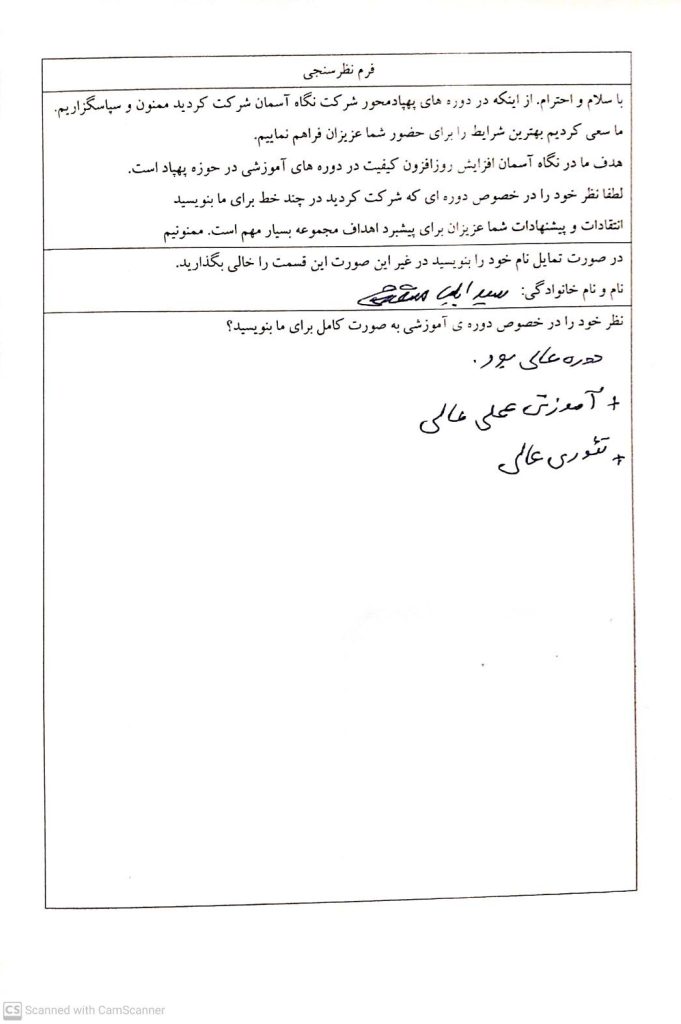 فرم نظرسنجی
با سلام و احترام. از اینکه در دوره های پهپادمحور شرکت نگاه آسمان شرکت کردید ممنون و سپاسگزاریم.
ما سعی کردیم بهترین شرایط را برای حضور شما عزیزان فراهم نماییم.
هدف ما در نگاه آسمان افزایش روزافزون کیفیت در دوره های آموزشی در حوزه پهپاد است.
لطفا نظر خود را در خصوص دوره ای که شرکت کردید در چند خط برای ما بنویسید
انتقادات و پیشنهادات شما عزیزان برای پیشبرد اهداف مجموعه بسیار مهم است. ممنونیم
در صورت تمایل نام خود را بنویسید در غیر این صورت این قسمت را خالی بگذارید.
نام و نام خانوادگی: سید
نظر خود را در خصوص دوره ی آموزشی به صورت کامل برای ما بنویسید؟
دوره عالی بود.
+ آموزش عملی عالی
+ تئوری عالی
CS Scanned with CamScanner